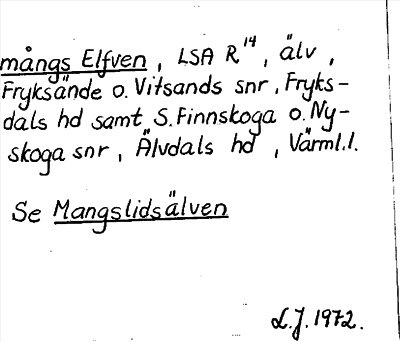 mångs Elfven, LSA R 14, älv,
Fryksände o. Vitsands snr, Fryks-
dals hd samt S. Finnskoga o. Ny-
skoga snr, Älvdals hd, Värml.l.
Se Mangslidsälven
L.J. 1972.